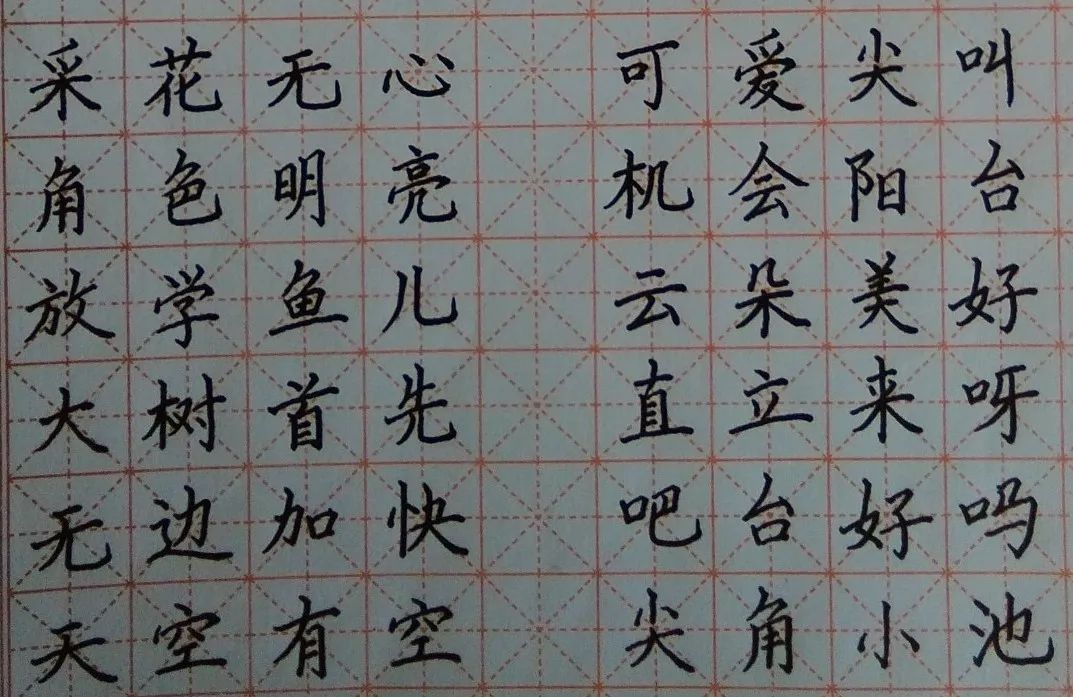 采花无心 可爱尖叫
角色明亮 机会阳台
放学鱼儿 云朵美好
大树首先 直立来呀
无边加快 吧台好吗
天空有空 尖角小池